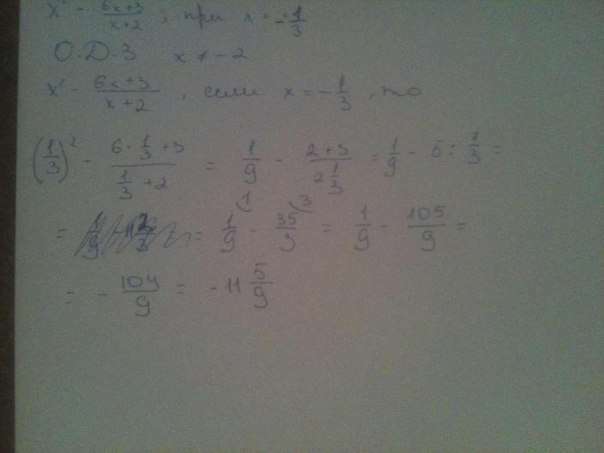 x² - (6x+3)/(x+2), при x = -1/3
О.Д.З x ≠ -2
x² - (6x+3)/(x+2), если x = -1/3, то
(1/3)² - (6·1/3+3)/(1/3+2) = 1/9 - (2+3)/(2 1/3) = 1/9 - 5 : =
= = 1/9 - 35/3 = 1/9 - 105/9 =
= - 104/9 = -11 5/9